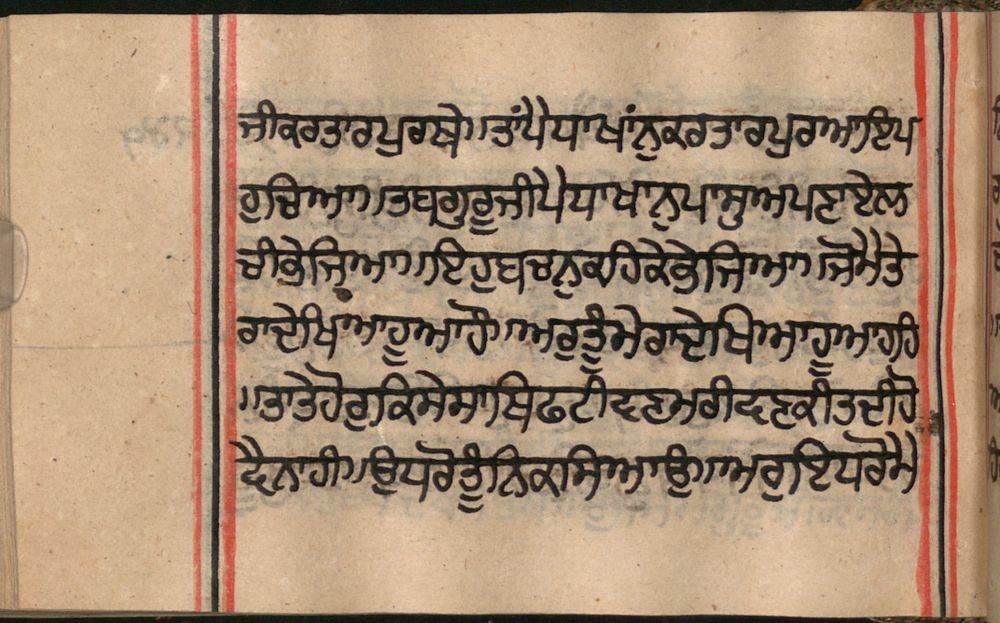 ਜੀਕਰਤਾਰਪੁਰਥੇ॥ਤਾਂਪੈਧਾਖਾਂਨੁਕਰਤਾਰਪੁਰਆਇਪ
ਰੁਚਿਆ॥ਤਬਗੁਰੂਜੀਪੈਧਾਖਾਨੁਪਾਸੁਅਪਣਾਏਲ
ਚੀਭੇਜਿਆ॥ਇਹੁਬਚਨੁਕਹਿਕੇਭੇਜਿਆ॥ਜੋਮੈਤੇ
ਰਾਦੇਖਿਆਹੂਆਹੌ॥ਅਰੁਤੂੰਮੇਰਾਦੇਖਿਆਹੂਆਹਹਿ
॥ਤਾਤੇਹੋਰੁਕਿਸੇਸਾਥਿਫਟੀਵਣਮਰੀਵਣਕੀਤਦੀਹੋ
ਦੈਨਾਹੀ॥ਉਧਰੋਤੂੰਨਿਕਸਿਆਉ॥ਅਰੁਇਧਰੋਮੈ